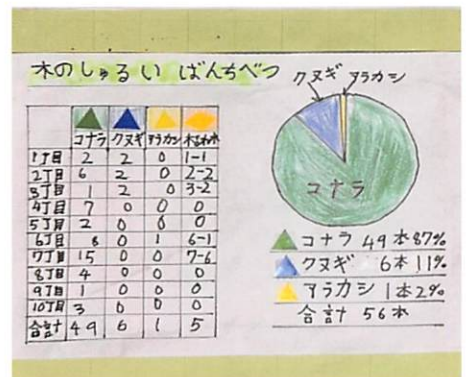 木のしゅるい ばんちべつ
コナラ クヌギ アラカシ
1丁目 2 2 0 1-1
2丁目 6 2 0 2-2
3丁目 1 2 0 3-2
4丁目 7 0 0 0
5丁目 2 0 0 0
6丁目 8 0 1 6-1
7丁目 15 0 0 7-6
8丁目 4 0 0 0
9丁目 1 0 0 0
10丁目 3 0 0 0
合計 49 6 1 5
クヌギ アラカシ
コナラ
コナラ 49本 87%
クヌギ 6本 11%
アラカシ 1本 2%
合計 56本